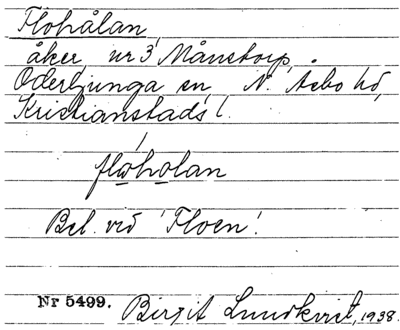 Flohålan,
åker, nr 3 Månstorp,
Oderljunga sn, N. Åsbo hd,
Kristianstads l.
flωholan
Bel. vid 'Floen'.
Nr 5499. Birgit Lundkvist, 1938.